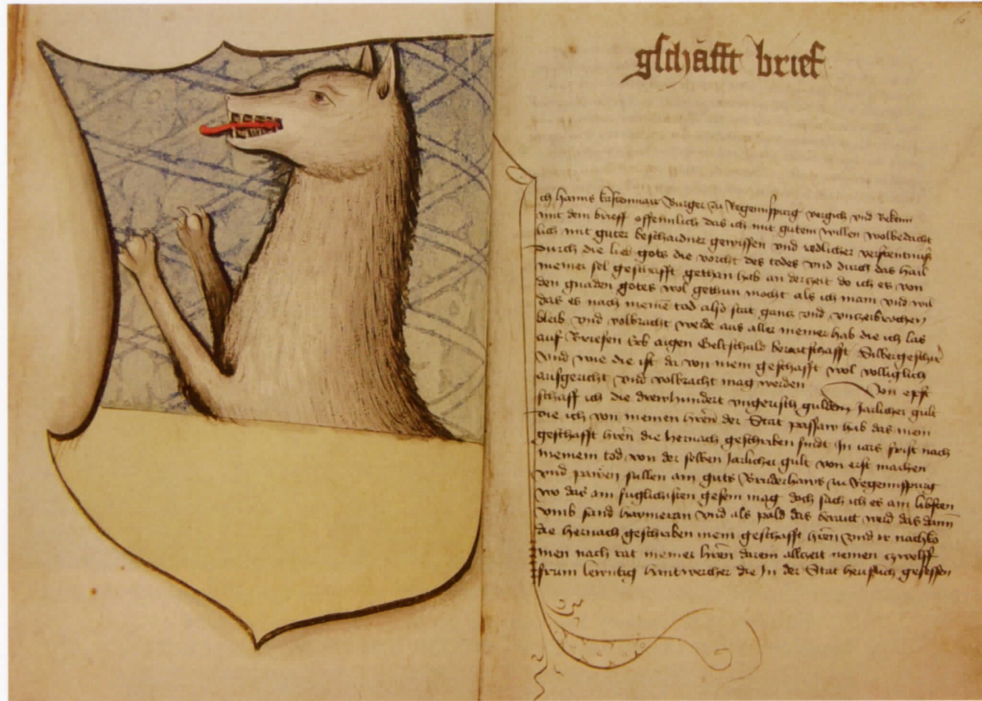 gschäfft brief
Ich Hanns kastenmair Burger zu Regennspurg vergich und bekenn
mit dem brieff offennlich das ich mit gutem willen wolbedacht
lich mit guter beschaidner gewissen und redlicher verstentnuß
durch die lieb gots die vorcht des todes und durch das hail
meiner sel geschafft gethan hab an der zeit do ich es von
den gnaden gotes wol gethun mocht als ich main und wil
das es nach meinē tod also stat gantz und unzerbrochen
bleib und volbracht werde aus aller meiner hab die ich las
auf brieffen aigen Geltschuld beraitschafft Silbergeschirr
und wie die ist da von mein geschafft wol volliglich
ausgericht und volbracht mag werden Von erst
schaff ich die drewhundert ungerisch gulden Jarlicher gult
die ich von meinen hrēn der Stat passaw hab das mein
geschafft hrēn die hernach geschriben sindt In iars frist nach
meinem tod von der selben Jarlicher gult von erst machen
und pawen sullen ain guts Bruderhaws zu Regennspurg
wo das am fuglichisten gesein mag doch sach ich es am libsten
umb sand haymeran und als pald das berait wird das dann
die hernach geschriben mein geschafft hrēn und ir nachko
men nach rat meiner hrēn darein allzeit nemen zwelff
frum hantwercher die In der Stat gesessen